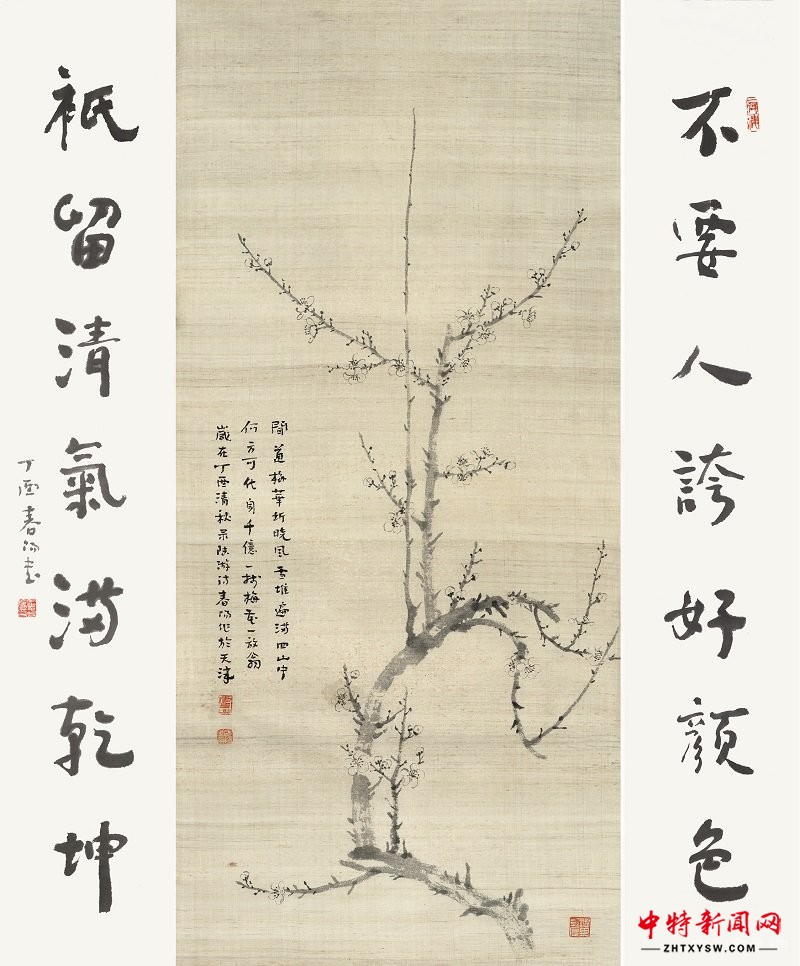 不要人誇好顏色
聞道梅華坼曉風雪堆遍滿四山中
何方可化身千億一樹梅花一放翁
歲在丁酉清秋录陸游詩春陽作於天津
祇留清氣滿乾坤
丁酉春陽書
中特新闻网
ZHTXYSW.COM